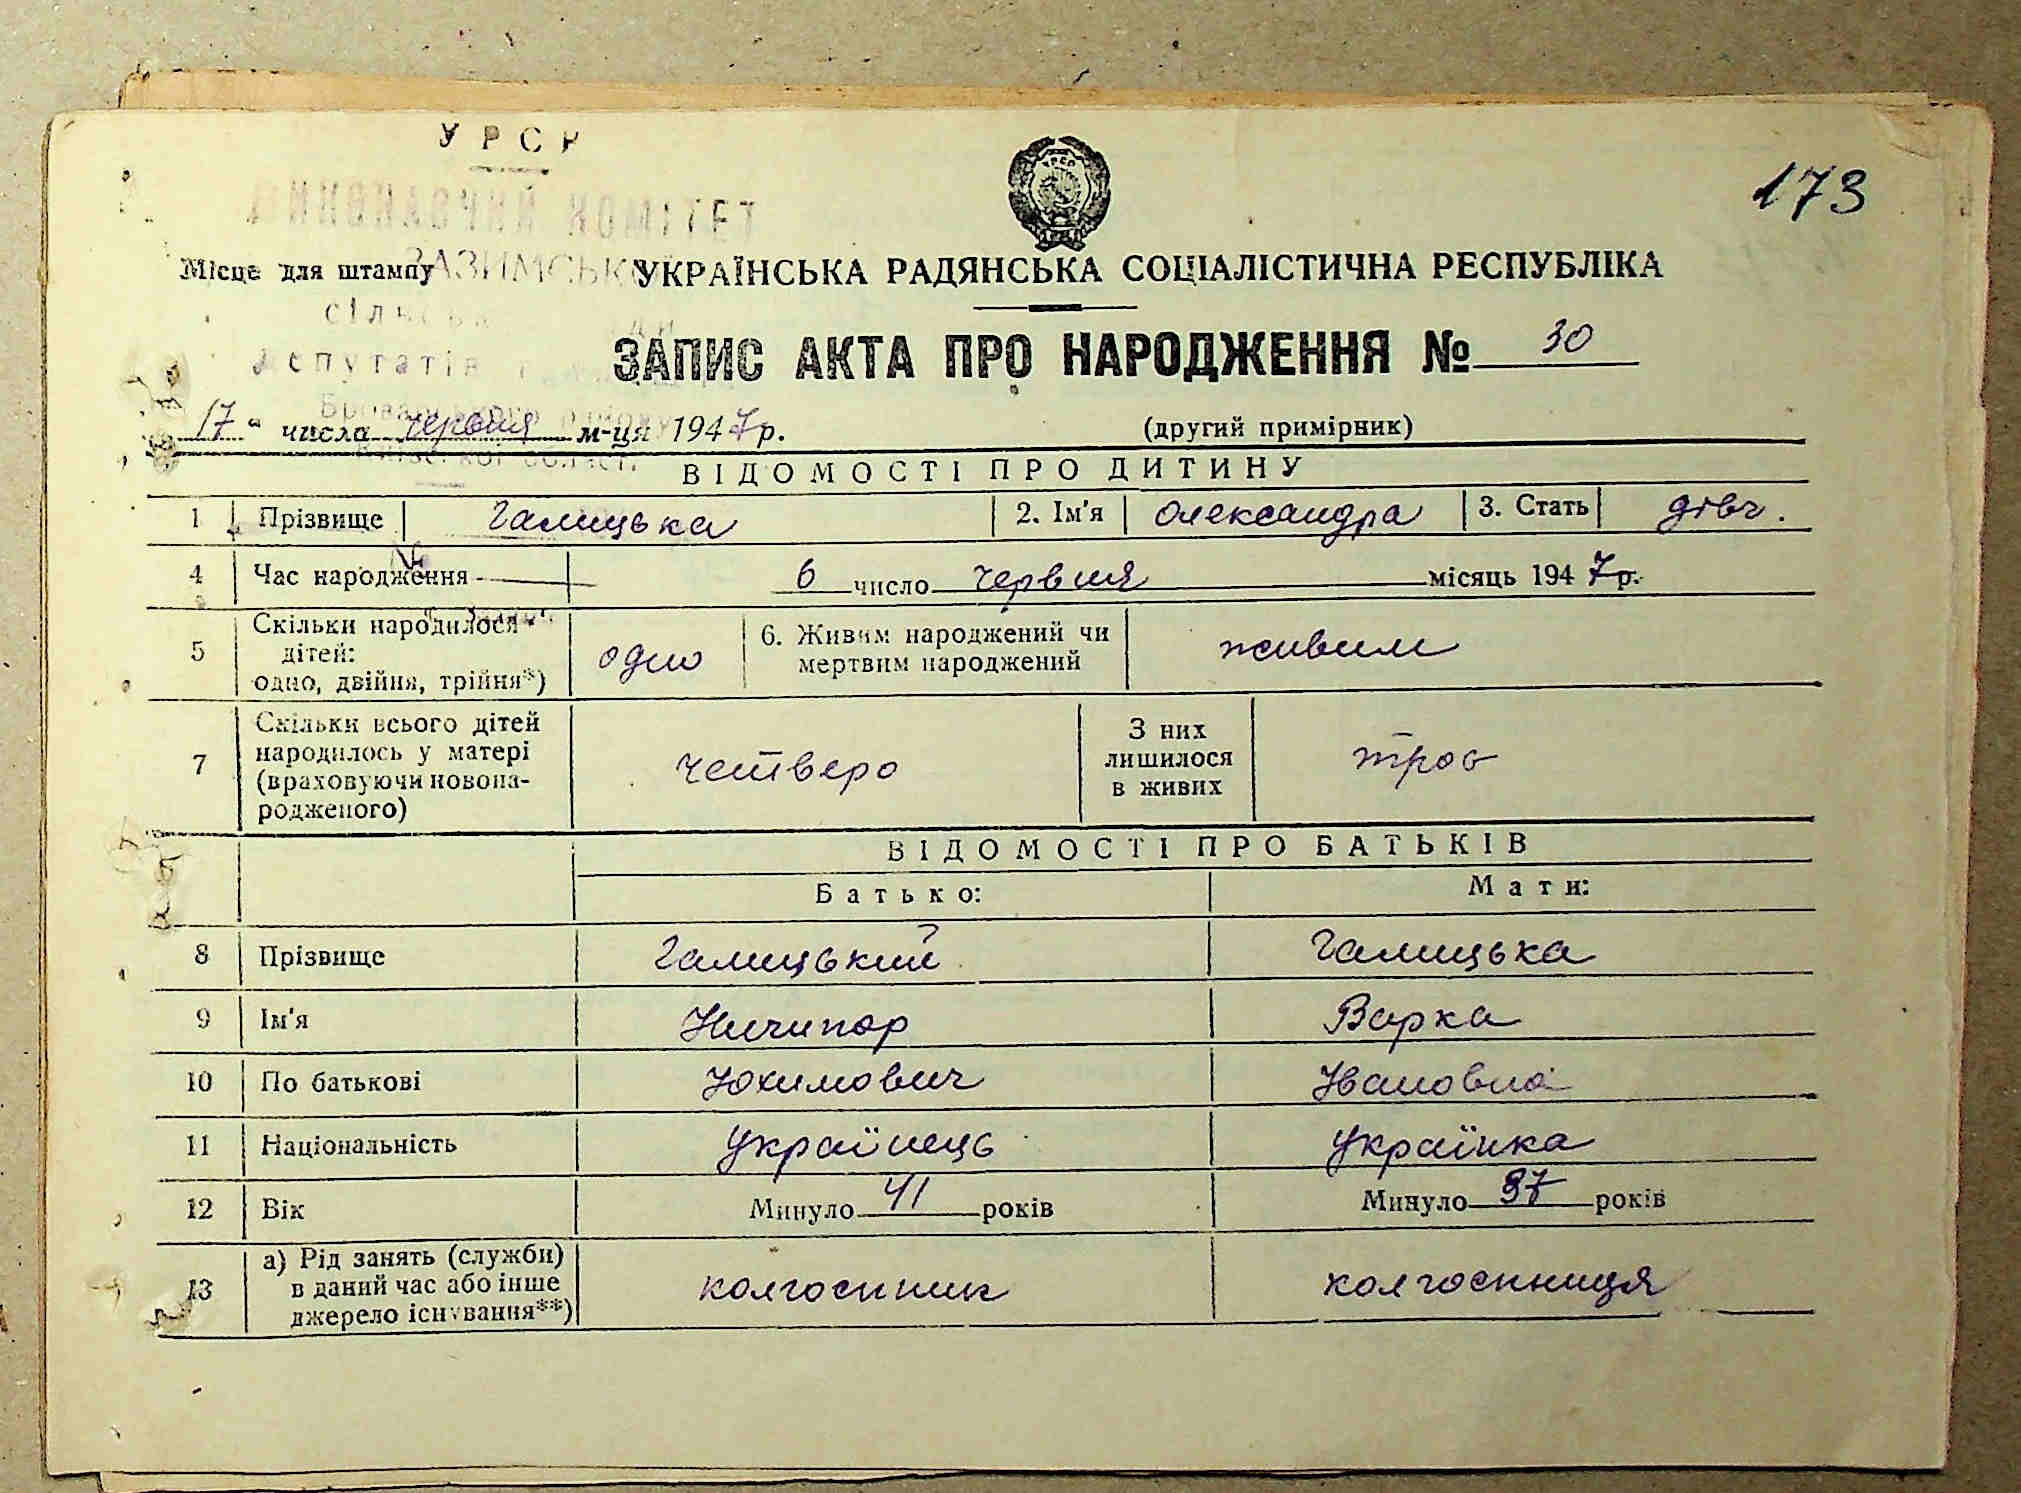 УРСР
ВИКОНАВЧИЙ КОМІТЕТ
173
ЗАЗИМСЬКО
Місце для штампу
УКРАЇНСЬКА РАДЯНСЬКА СОЦІАЛІСТИЧНА РЕСПУБЛІКА
депутатів
ЗАПИС АКТА ПРО НАРОДЖЕННЯ № 30
„17" числа червня м-ця 1947 р.
(другий примірник)
Київської області
ВІДОМОСТІ ПРО ДИТИНУ
1 Прізвище Галицька 2. Ім'я Олександра 3. Стать дівч.
4 Час народження 6 число червня місяць 1947 р.
5 Скільки народилося дітей: одно, двійня, трійня*) одно 6. Живим народжений чи мертвим народжений живим
7 Скільки всього дітей народилось у матері (враховуючи новонародженого) четверо З них лишилося в живих троє
ВІДОМОСТІ ПРО БАТЬКІВ
Батько: Мати:
8 Прізвище Галицький Галицька
9 Ім'я Ничипор Варка
10 По батькові Юхимович Івановна
11 Національність Українець Українка
12 Вік Минуло 41 років Минуло 37 років
13 а) Рід занять (служби) в даний час або інше джерело існування**) колгоспник колгоспниця